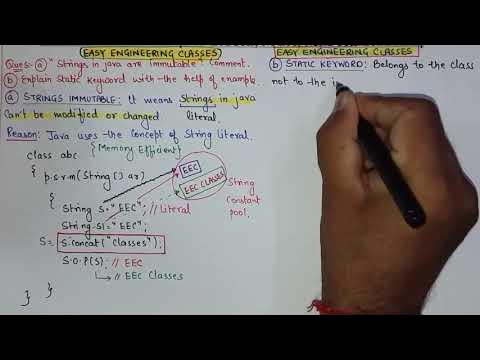 EASY ENGINEERING CLASSES
Ques:- a) "Strings in java are immutable" Comment.
b) Explain Static Keyword with the help of example.
a) STRINGS IMMUTABLE: It means Strings in java
Can't be modified or changed literal.
Reason: Java uses the concept of String literal.
class abc {Memory Efficient}
{ p.s.v.m(String [] ar)
{
String S = "EEC"; // Literal
String S1 = "EEC";
S = S.concat("Classes");
S.O.P(S); // EEC
// EEC Classes
}
}
EEC
EEC CLASSES
String
Constant
pool.
EASY ENGINEERING CLASSES
b) STATIC KEYWORD: Belongs to the class
not to the i